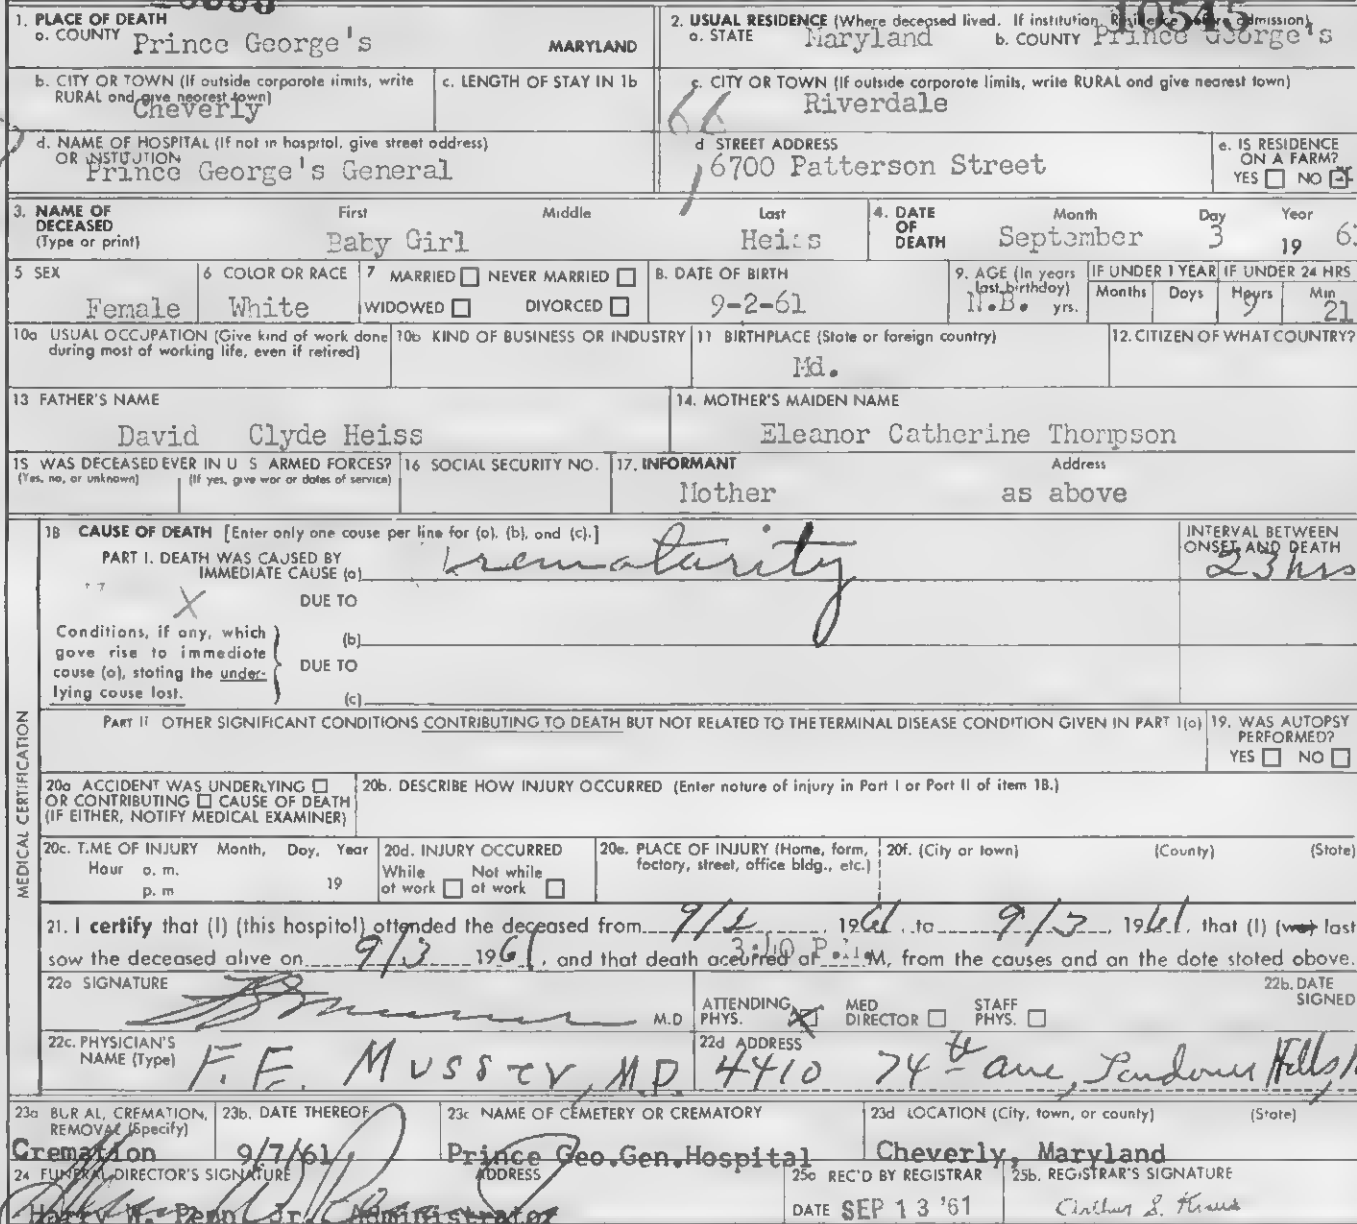 10545
1. PLACE OF DEATH
a. COUNTY Prince George's MARYLAND
2. USUAL RESIDENCE (Where deceased lived. If institution, Residence before admission)
a. STATE Maryland b. COUNTY Prince George's
b. CITY OR TOWN (If outside corporate limits, write RURAL and give nearest town)
Cheverly
c. LENGTH OF STAY IN 1b
c. CITY OR TOWN (If outside corporate limits, write RURAL and give nearest town)
Riverdale
66
d. NAME OF HOSPITAL (If not in hospital, give street address)
OR INSTITUTION
Prince George's General
d STREET ADDRESS
6700 Patterson Street
e. IS RESIDENCE ON A FARM?
YES NO
3. NAME OF DECEASED (Type or print)
First Middle Last
Baby Girl Heiss
4. DATE OF DEATH
Month Day Year
September 3 19 6
5 SEX
Female
6 COLOR OR RACE
White
7 MARRIED NEVER MARRIED
WIDOWED DIVORCED
8. DATE OF BIRTH
9-2-61
9. AGE (In years last birthday)
N.B. yrs.
IF UNDER 1 YEAR
Months Days
IF UNDER 24 HRS
Hours Min
9 21
10a USUAL OCCUPATION (Give kind of work done during most of working life, even if retired)
10b KIND OF BUSINESS OR INDUSTRY
11 BIRTHPLACE (State or foreign country)
Md.
12. CITIZEN OF WHAT COUNTRY?
13 FATHER'S NAME
David Clyde Heiss
14. MOTHER'S MAIDEN NAME
Eleanor Catherine Thompson
15 WAS DECEASED EVER IN U S ARMED FORCES?
(Yes, no, or unknown) (If yes, give war or dates of service)
16 SOCIAL SECURITY NO.
17. INFORMANT Address
Mother as above
MEDICAL CERTIFICATION
18 CAUSE OF DEATH [Enter only one cause per line for (a), (b), and (c).]
PART I. DEATH WAS CAUSED BY
IMMEDIATE CAUSE (a) Prematurity
INTERVAL BETWEEN ONSET AND DEATH
23 hrs
X
DUE TO
Conditions, if any, which gave rise to immediate cause (a), stating the underlying cause last.
(b)
DUE TO
(c)
PART II OTHER SIGNIFICANT CONDITIONS CONTRIBUTING TO DEATH BUT NOT RELATED TO THE TERMINAL DISEASE CONDITION GIVEN IN PART I(a)
19. WAS AUTOPSY PERFORMED?
YES NO
20a ACCIDENT WAS UNDERLYING
OR CONTRIBUTING CAUSE OF DEATH
(IF EITHER, NOTIFY MEDICAL EXAMINER)
20b. DESCRIBE HOW INJURY OCCURRED (Enter nature of injury in Part I or Part II of item 18.)
20c. TIME OF INJURY Month, Day, Year
Hour a. m.
p. m 19
20d. INJURY OCCURRED
While at work Not while at work
20e. PLACE OF INJURY (Home, farm, factory, street, office bldg., etc.)
20f. (City or town) (County) (State)
21. I certify that (I) (this hospital) attended the deceased from 9/2, 1961, to 9/3, 1961, that (I) (we) last
saw the deceased alive on 9/3 1961, and that death occurred at 3:40 P.M. M, from the causes and on the date stated above.
22a SIGNATURE
M.D
ATTENDING PHYS. MED DIRECTOR STAFF PHYS.
22b. DATE SIGNED
22c. PHYSICIAN'S NAME (Type)
F. E. MUSSER, M.D.
22d ADDRESS
4410 74th ave, Landover Hills
23a BURIAL, CREMATION, REMOVAL (Specify)
Cremation
23b. DATE THEREOF
9/7/61
23c NAME OF CEMETERY OR CREMATORY
Prince Geo.Gen.Hospital
23d LOCATION (City, town, or county) (State)
Cheverly, Maryland
24 FUNERAL DIRECTOR'S SIGNATURE ADDRESS
Harry W. Penn Jr. Administrator
25a REC'D BY REGISTRAR
DATE SEP 13 '61
25b. REGISTRAR'S SIGNATURE
Arthur S. Kraus